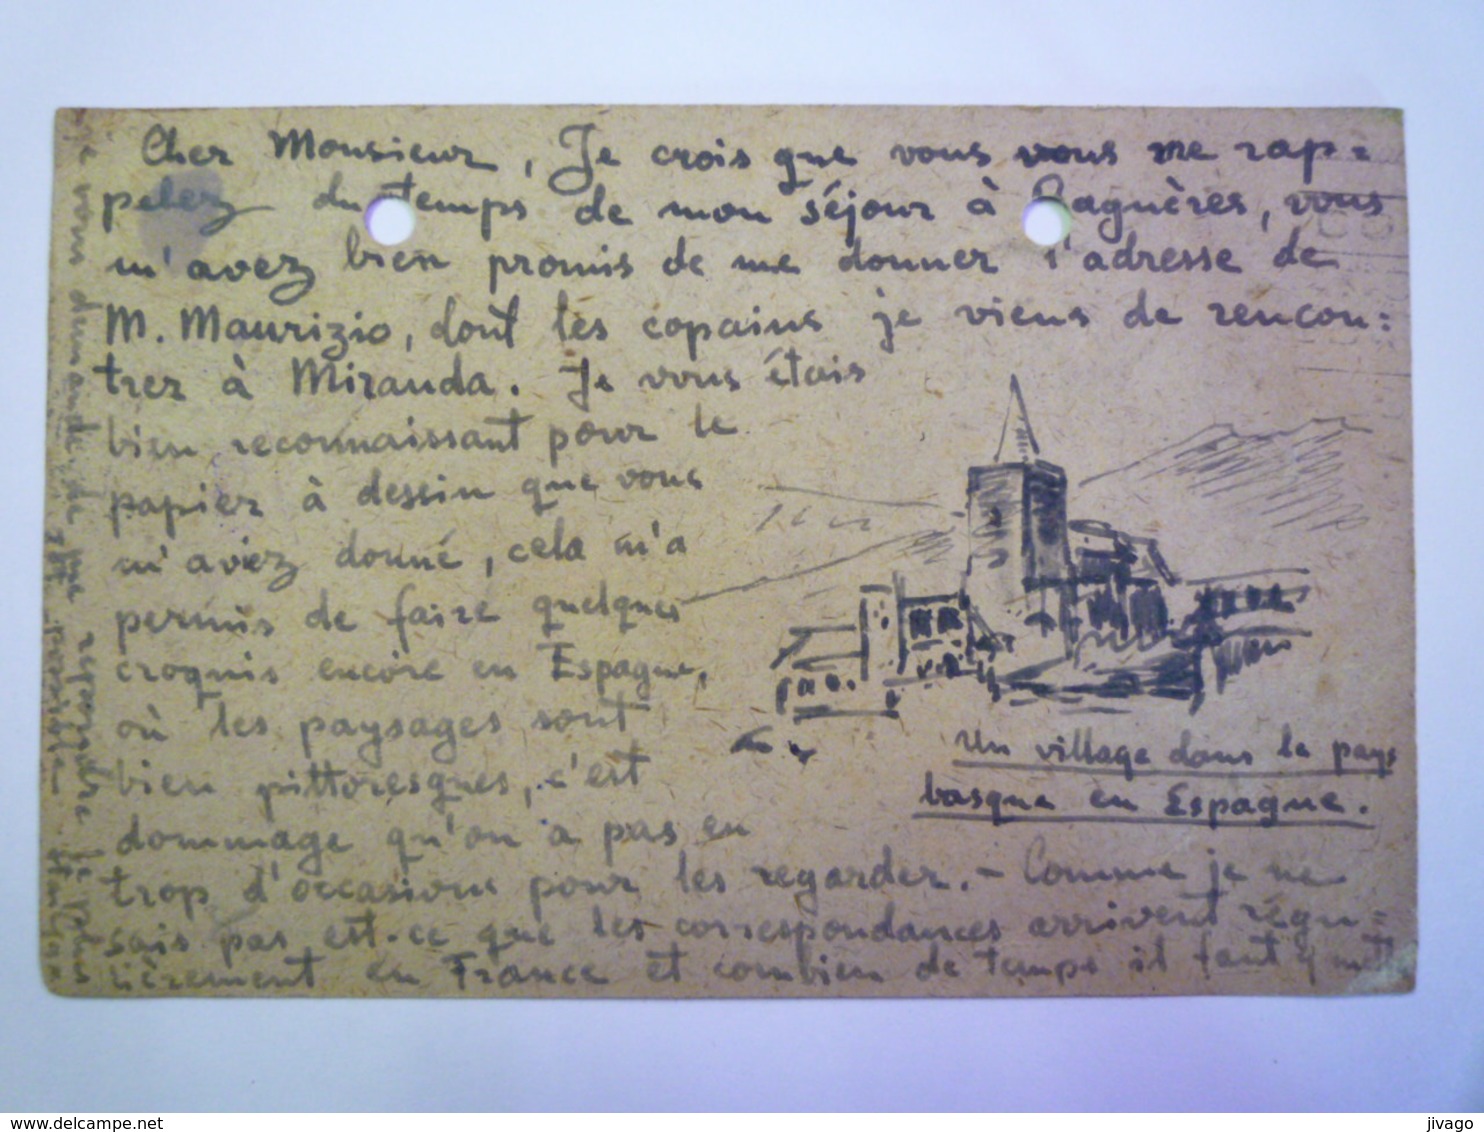 Cher Monsieur, Je crois que vous vous me rap=
pelez du temps de mon séjour à Bagnères, vous
m'avez bien promis de me donner l'adresse de
M. Maurizio, dont les copains je viens de rencon=
trer à Miranda. Je vous étais
bien reconnaissant pour le
papier à dessin que vous
m'aviez donné, cela m'a
permis de faire quelques
croquis encore en Espagne,
où les paysages sont
bien pittoresques, c'est
dommage qu'on a pas en
trop d'occasions pour les regarder. – Comme je ne
sais pas est-ce que les correspondances arrivent régu=
lièrement en France et combien de temps il faut y mett
Un village dans le pays
basque en Espagne.
je vous demande de me repondre le plus
tôt possible
www.delcampe.net
jivago